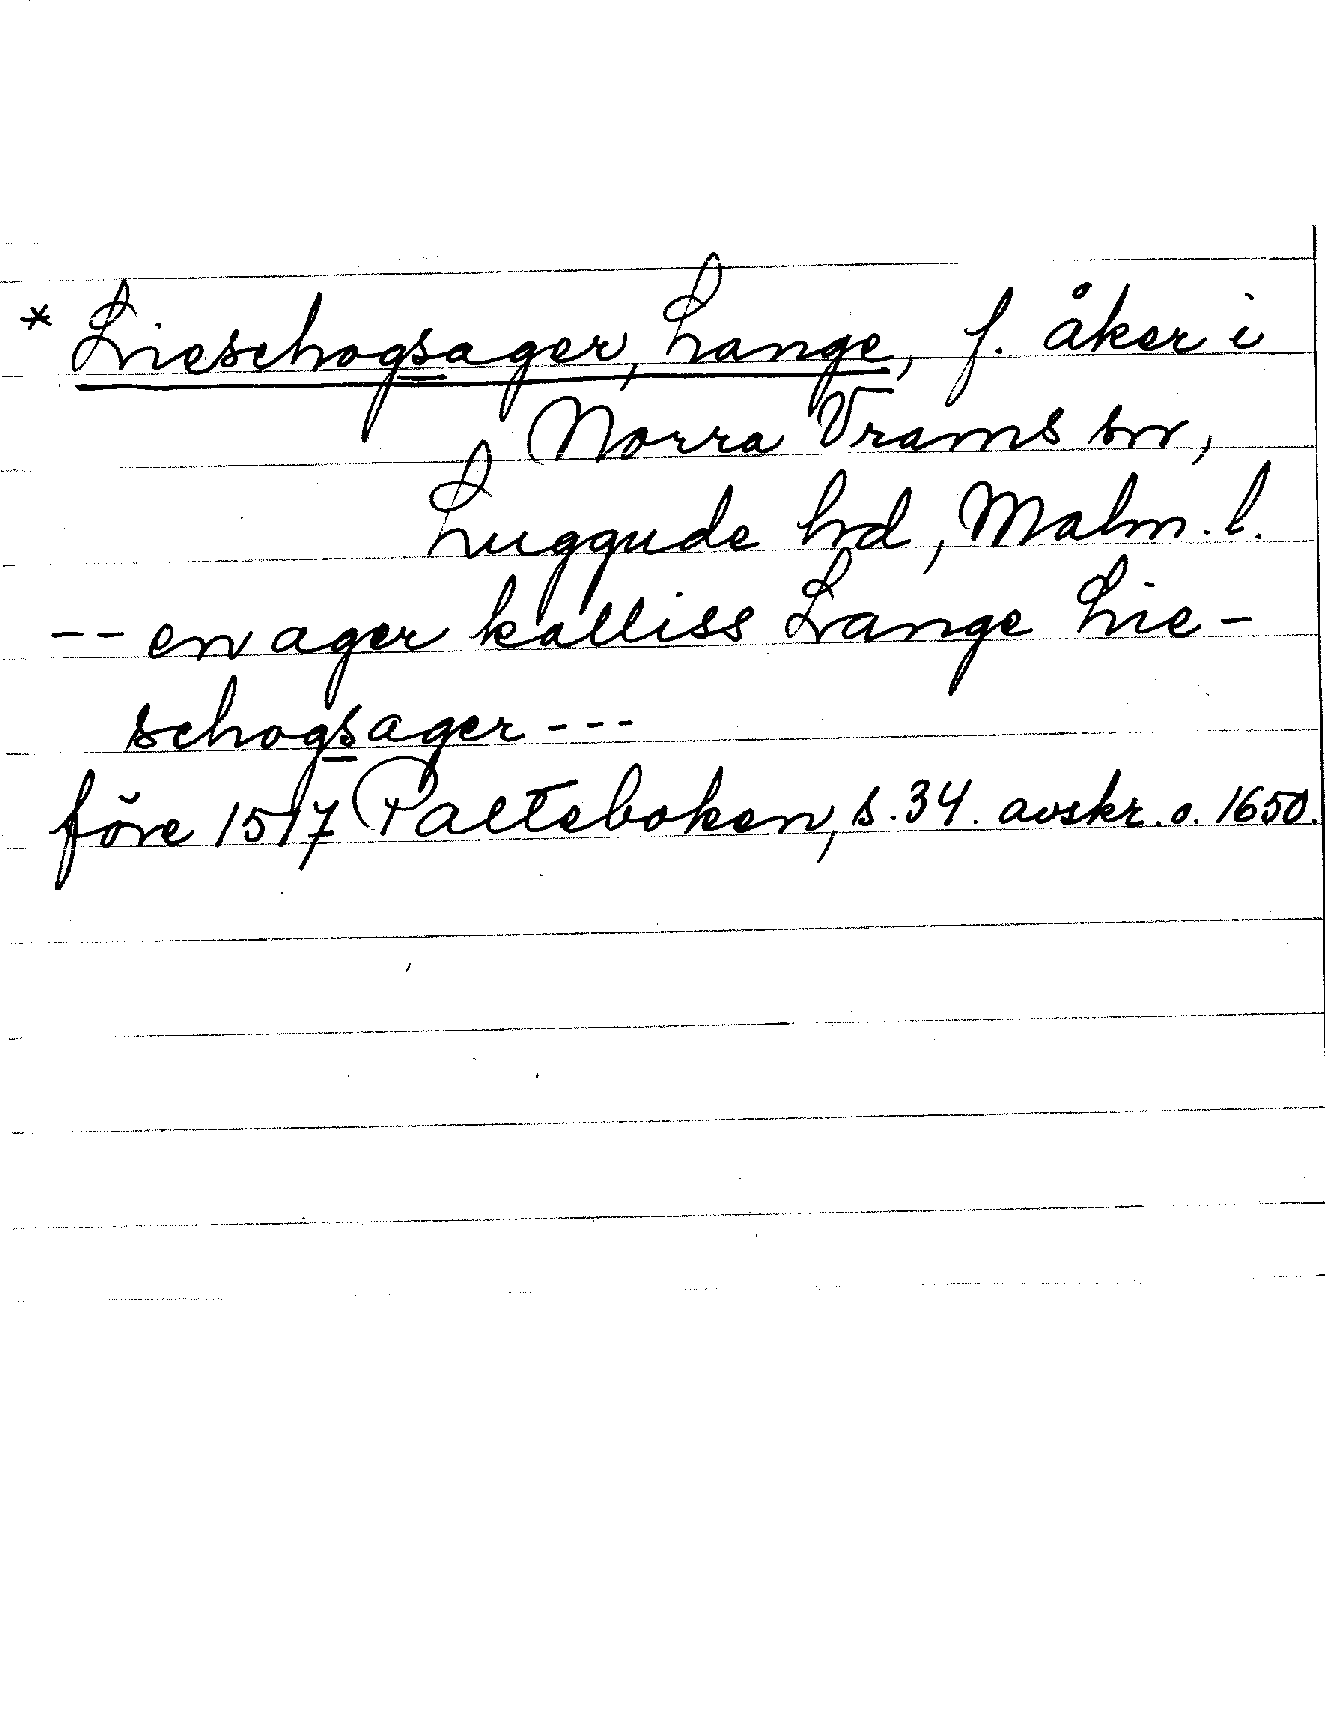 * Lieschogsager, Lange, f. åker i
Norra Vrams sn,
Luggude hd, Malm. l.
-- en ager kalliss Lange Lie-
schogsager ---
före 1517 Palteboken, s. 34. avskr. o. 1650.